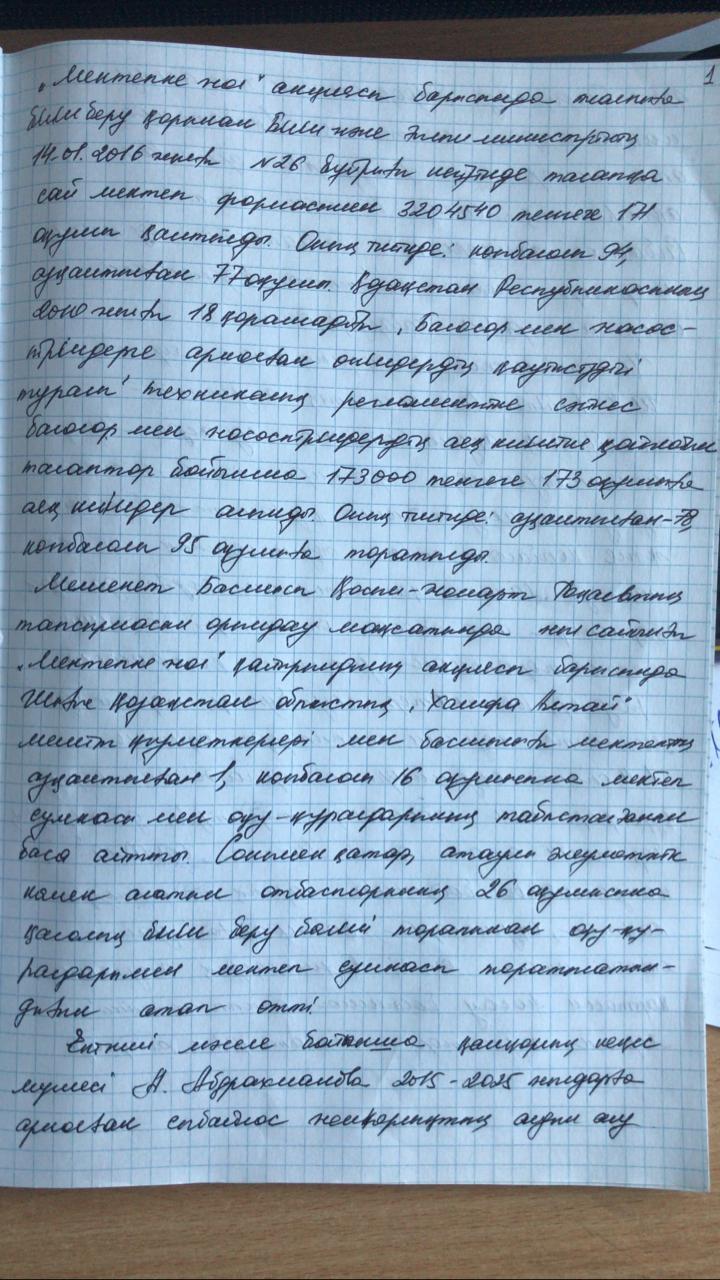 1
„Мектепке жол" акциясы барысында жалпыға
білім беру қорынан Білім және ғылым министрінің
14.01.2016 жылғы №26 бұйрығы негізінде талапқа
сай мектеп формасымен 3204540 теңгеге 171
оқушы қамтылды. Оның ішінде: көпбалалы 94,
аз қамтылған 77 оқушы. Қазақстан Республикасының
2010 жылғы 18 қарашадағы „Балалар мен жасөс-
пірімдерге арналған өнімдердің қауіпсіздігі
туралы" техникалық регламентіне сәйкес
балалар мен жасөспірімдердің аяқ киіміне қойылатын
талаптар бойынша 173000 теңгеге 173 оқушыға
аяқ киімдер алынды. Оның ішінде: аз қамтылған-78,
көпбалалы 95 оқушыға таратылды.
Мемлекет Басшысы Қасым-Жомарт Тоқаевтың
тапсырмасын орындау мақсатында жыл сайынғы
„Мектепке жол" қайырымдылық акциясы барысында
Шығыс Қазақстан облыстық „Халифа Алтай"
мешіт қызметкерлері мен мектептің
аз қамтылған 1, көпбалалы 16 оқушысына мектеп
сумкасы мен оқу-құралдарының табысталғанын
баса айтты. Сонымен қатар, атаулы әлеуметтік
көмек алатын отбасыларының 26 оқушысына
қалалық білім беру бөлімі тарапынан оқу-құ-
ралдарымен мектеп сумкасы таратылатын-
дығын атап өтті.
Екінші мәселе бойынша қамқорлық кеңес
мүшесі А. Абдрахманова 2015-2025 жылдарға
арналған сыбайлас жемқорлықтың алдын алу